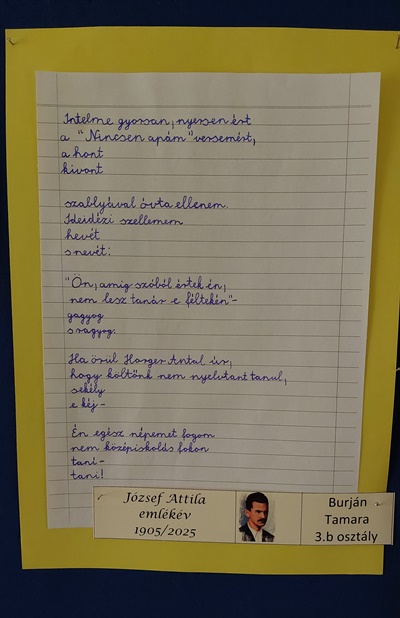 Intelme gyorsan, nyersen ért
a "Nincsen apám" versemért,
a hont
kivont
szablyával óvta ellenem.
Ideidézi szellemem
hevét
s nevét:
"Ön, amig szóból értek én,
nem lesz tanár e féltekén"-
gagyog
s ragyog.
Ha örül Horger Antal úr,
hogy költőnk nem nyelvtant tanul,
sekély
e kéj-
Én egész népemet fogom
nem középiskolás fokon
taní-
tani!
József Attila
emlékév
1905/2025
Burján
Tamara
3.b osztály